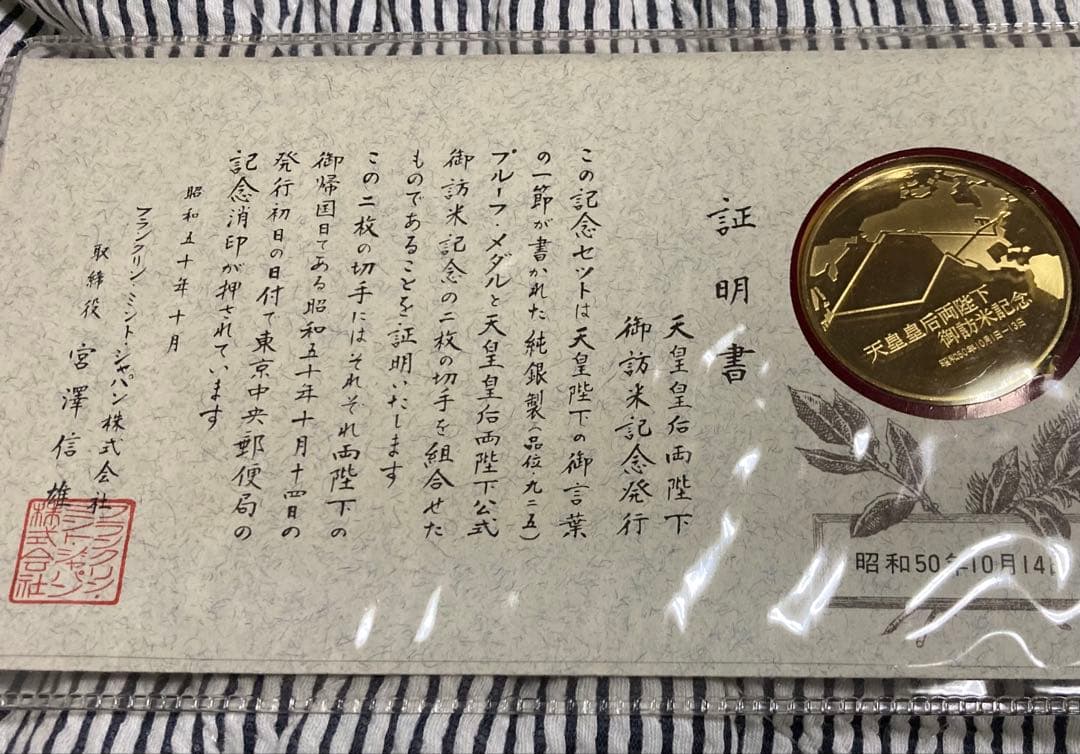 証明書
天皇皇后両陛下
御訪米記念発行
この記念セットは天皇陛下の御言葉
の一節が書かれた純銀製(品位・九二五)
プルーフ・メダルと天皇皇后両陛下公式
御訪米記念の二枚の切手を組合せた
ものであることを証明いたします
この二枚の切手にはそれぞれ両陛下の
御帰国日である昭和五十年十月十四日の
発行初日の日付で東京中央郵便局の
記念消印が押されています
昭和五十年十月
フランクリン・ミント・ジャパン株式会社
取締役 宮澤信雄
フランクリン・
ミント・ジャパン
株式会社
天皇皇后両陛下
御訪米記念
昭和50年10月1日-13日
昭和50年10月14日